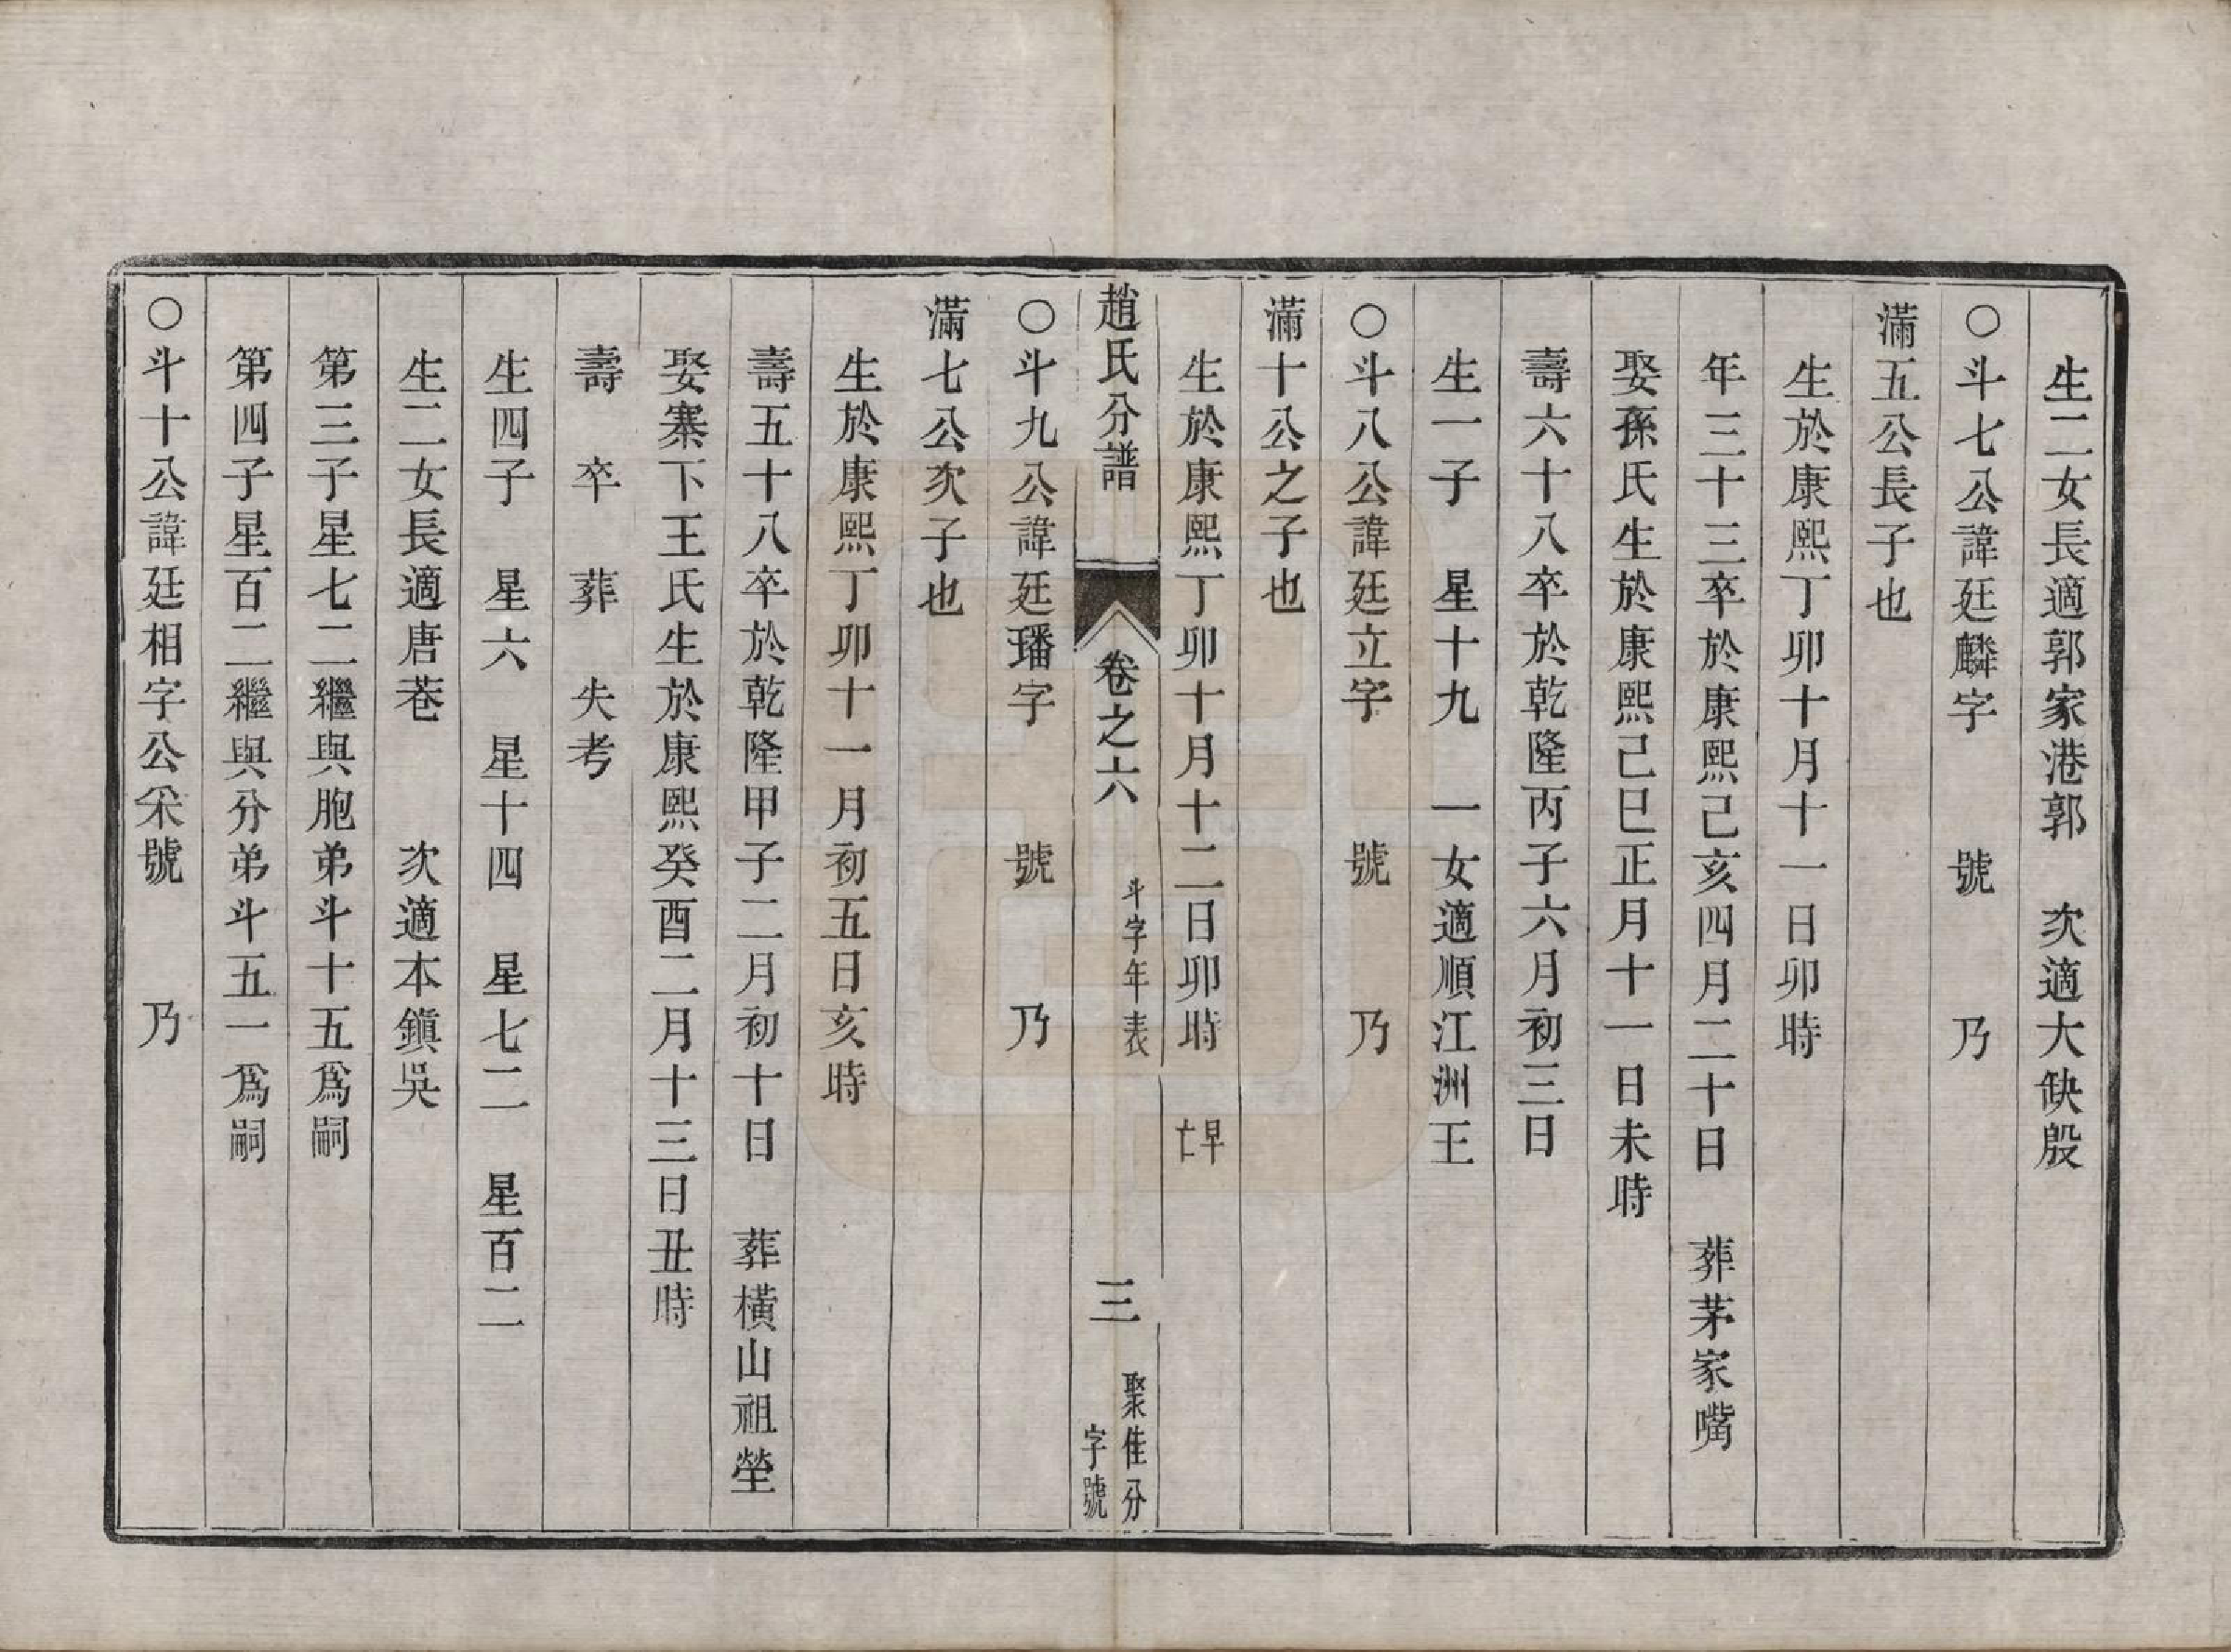 生二女長適郭家港郭　次適大缺殷
○斗七公諱廷麟字　號　乃
滿五公長子也
生於康熙丁卯十月十一日卯時
年三十三卒於康熙己亥四月二十日　葬茅家嘴
娶孫氏生於康熙己巳正月十一日未時
壽六十八卒於乾隆丙子六月初三日
生一子　星十九　一女適順江洲王
○斗八公諱廷立字　號　乃
滿十公之子也
生於康熙丁卯十月十二日卯時　早亡
趙氏分譜　卷之六　斗字年表　三　聚隹分字號
○斗九公諱廷璠字　號　乃
滿七公次子也
生於康熙丁卯十一月初五日亥時
壽五十八卒於乾隆甲子二月初十日　葬橫山祖塋
娶寨下王氏生於康熙癸酉二月十三日丑時
壽　卒　葬　失考
生四子　星六　星十四　星七二　星百二
生二女長適唐巷　次適本鎮吳
第三子星七二繼與胞弟斗十五爲嗣
第四子星百二繼與分弟斗五一爲嗣
○斗十公諱廷相字公采號　乃